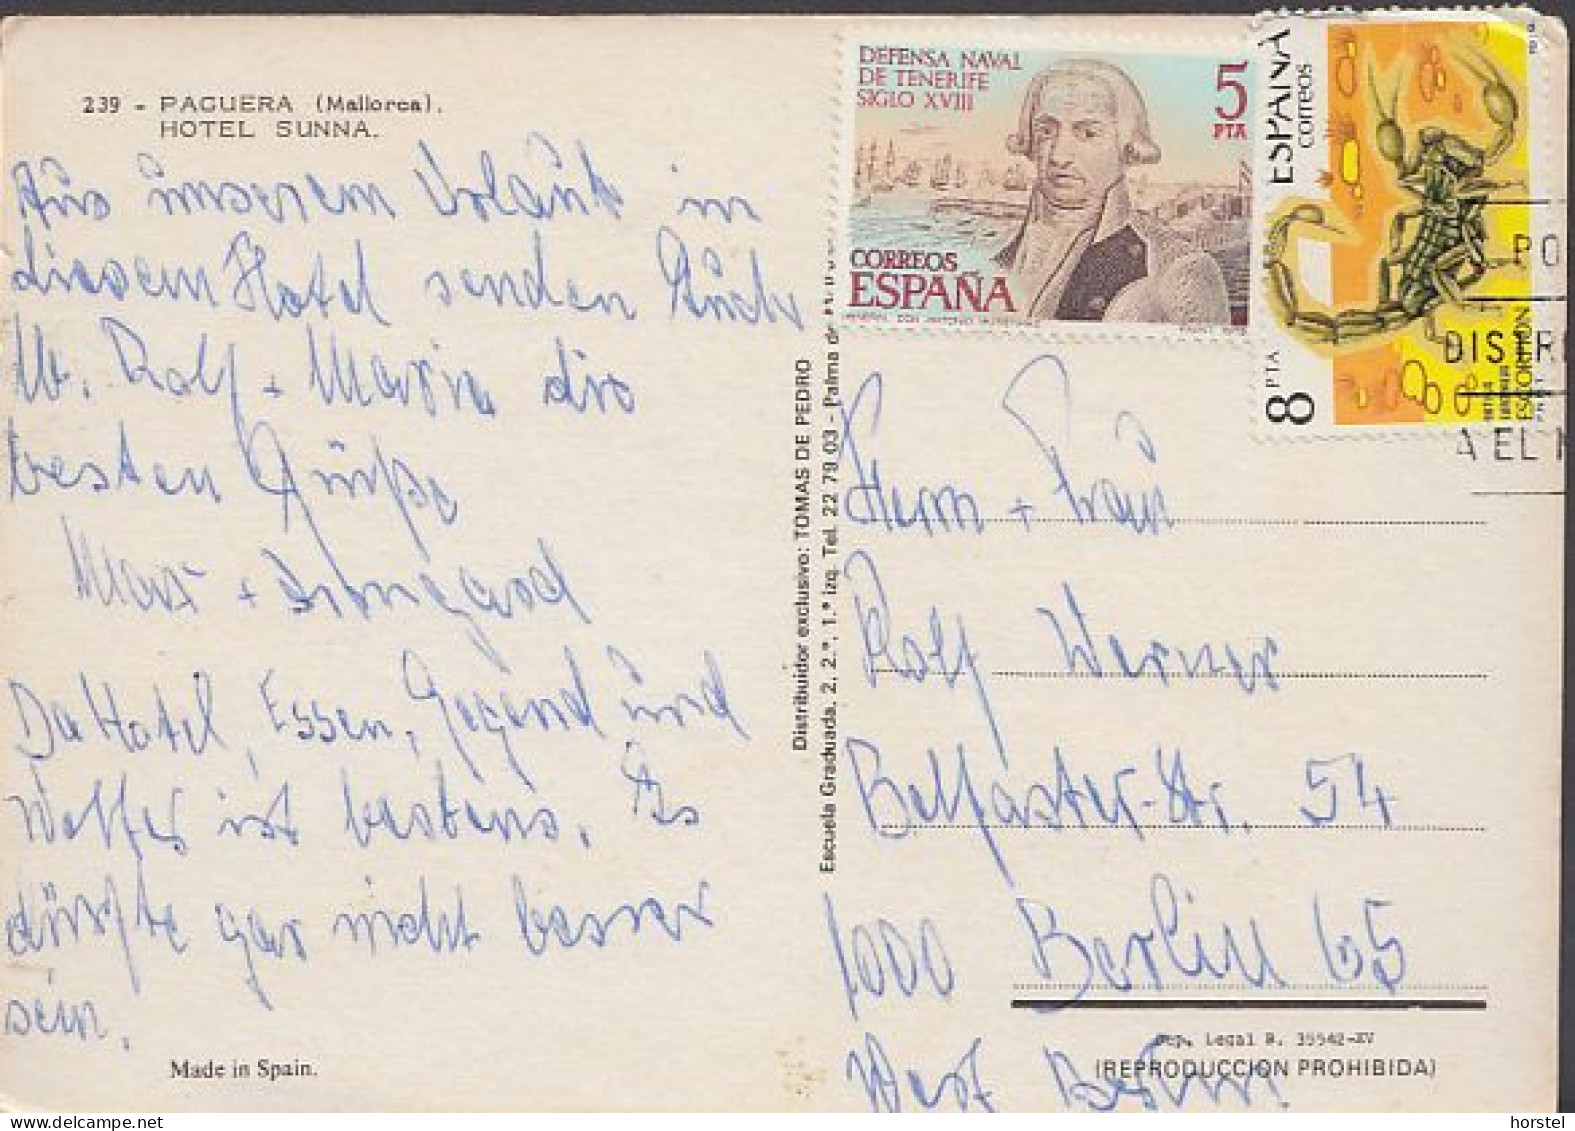 239 - PAGUERA (Mallorca).
HOTEL SUNNA.
Aus unserem Urlaub in
diesem Hotel senden Euch
lb. Rolf + Maria die
besten Grüße
Max + Irmgard
Da Hotel, Essen, Gegend und
Wetter ist bestens. Es
dürfte gar nicht besser
sein.
Made in Spain.
Distribuidor exclusivo: TOMAS DE PEDRO
Escuela Graduada, 2, 2.º, 1.ª izq. Tel. 22 79 03 - Palma de
DEFENSA NAVAL
DE TENERIFE
SIGLO XVIII
5
PTA
CORREOS
ESPAÑA
ESPAÑA
correos
8
PTA
ESCORPION
PO
DISTR
A EL
Herrn + Frau
Rolf Werner
Belfaster-Str. 54
1000 Berlin 65
West Berlin
Dep. Legal B. 35542-XV
(REPRODUCCION PROHIBIDA)
horstel